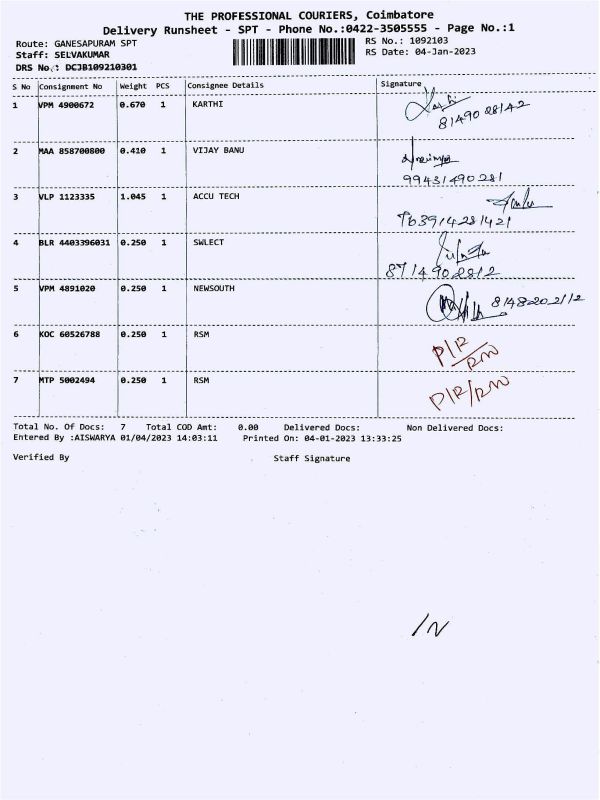 THE PROFESSIONAL COURIERS, Coimbatore
Delivery Runsheet - SPT - Phone No.:0422-3505555 - Page No.:1
Route: GANESAPURAM SPT RS No.: 1092103
Staff: SELVAKUMAR RS Date: 04-Jan-2023
DRS No.: DCJB109210301
S No Consignment No Weight PCS Consignee Details Signature
1 VPM 4900672 0.670 1 KARTHI
8149028142
2 MAA 858700800 0.410 1 VIJAY BANU
99431490281
3 VLP 1123335 1.045 1 ACCU TECH
4 BLR 4403396031 0.250 1 SWLECT
8714902812
5 VPM 4891020 0.250 1 NEWSOUTH
6 KOC 60526788 0.250 1 RSM P/R/RM
7 MTP 5002494 0.250 1 RSM P/R/RM
Total No. Of Docs: 7 Total COD Amt: 0.00 Delivered Docs: Non Delivered Docs:
Entered By :AISWARYA 01/04/2023 14:03:11 Printed On: 04-01-2023 13:33:25
Verified By Staff Signature